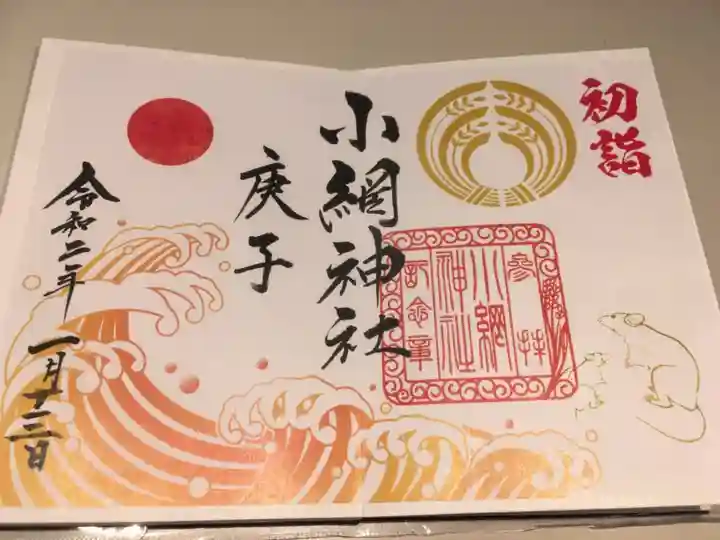 初詣
小網神社
庚子
令和二年一月十三日
参拝
小網
神社
記念章